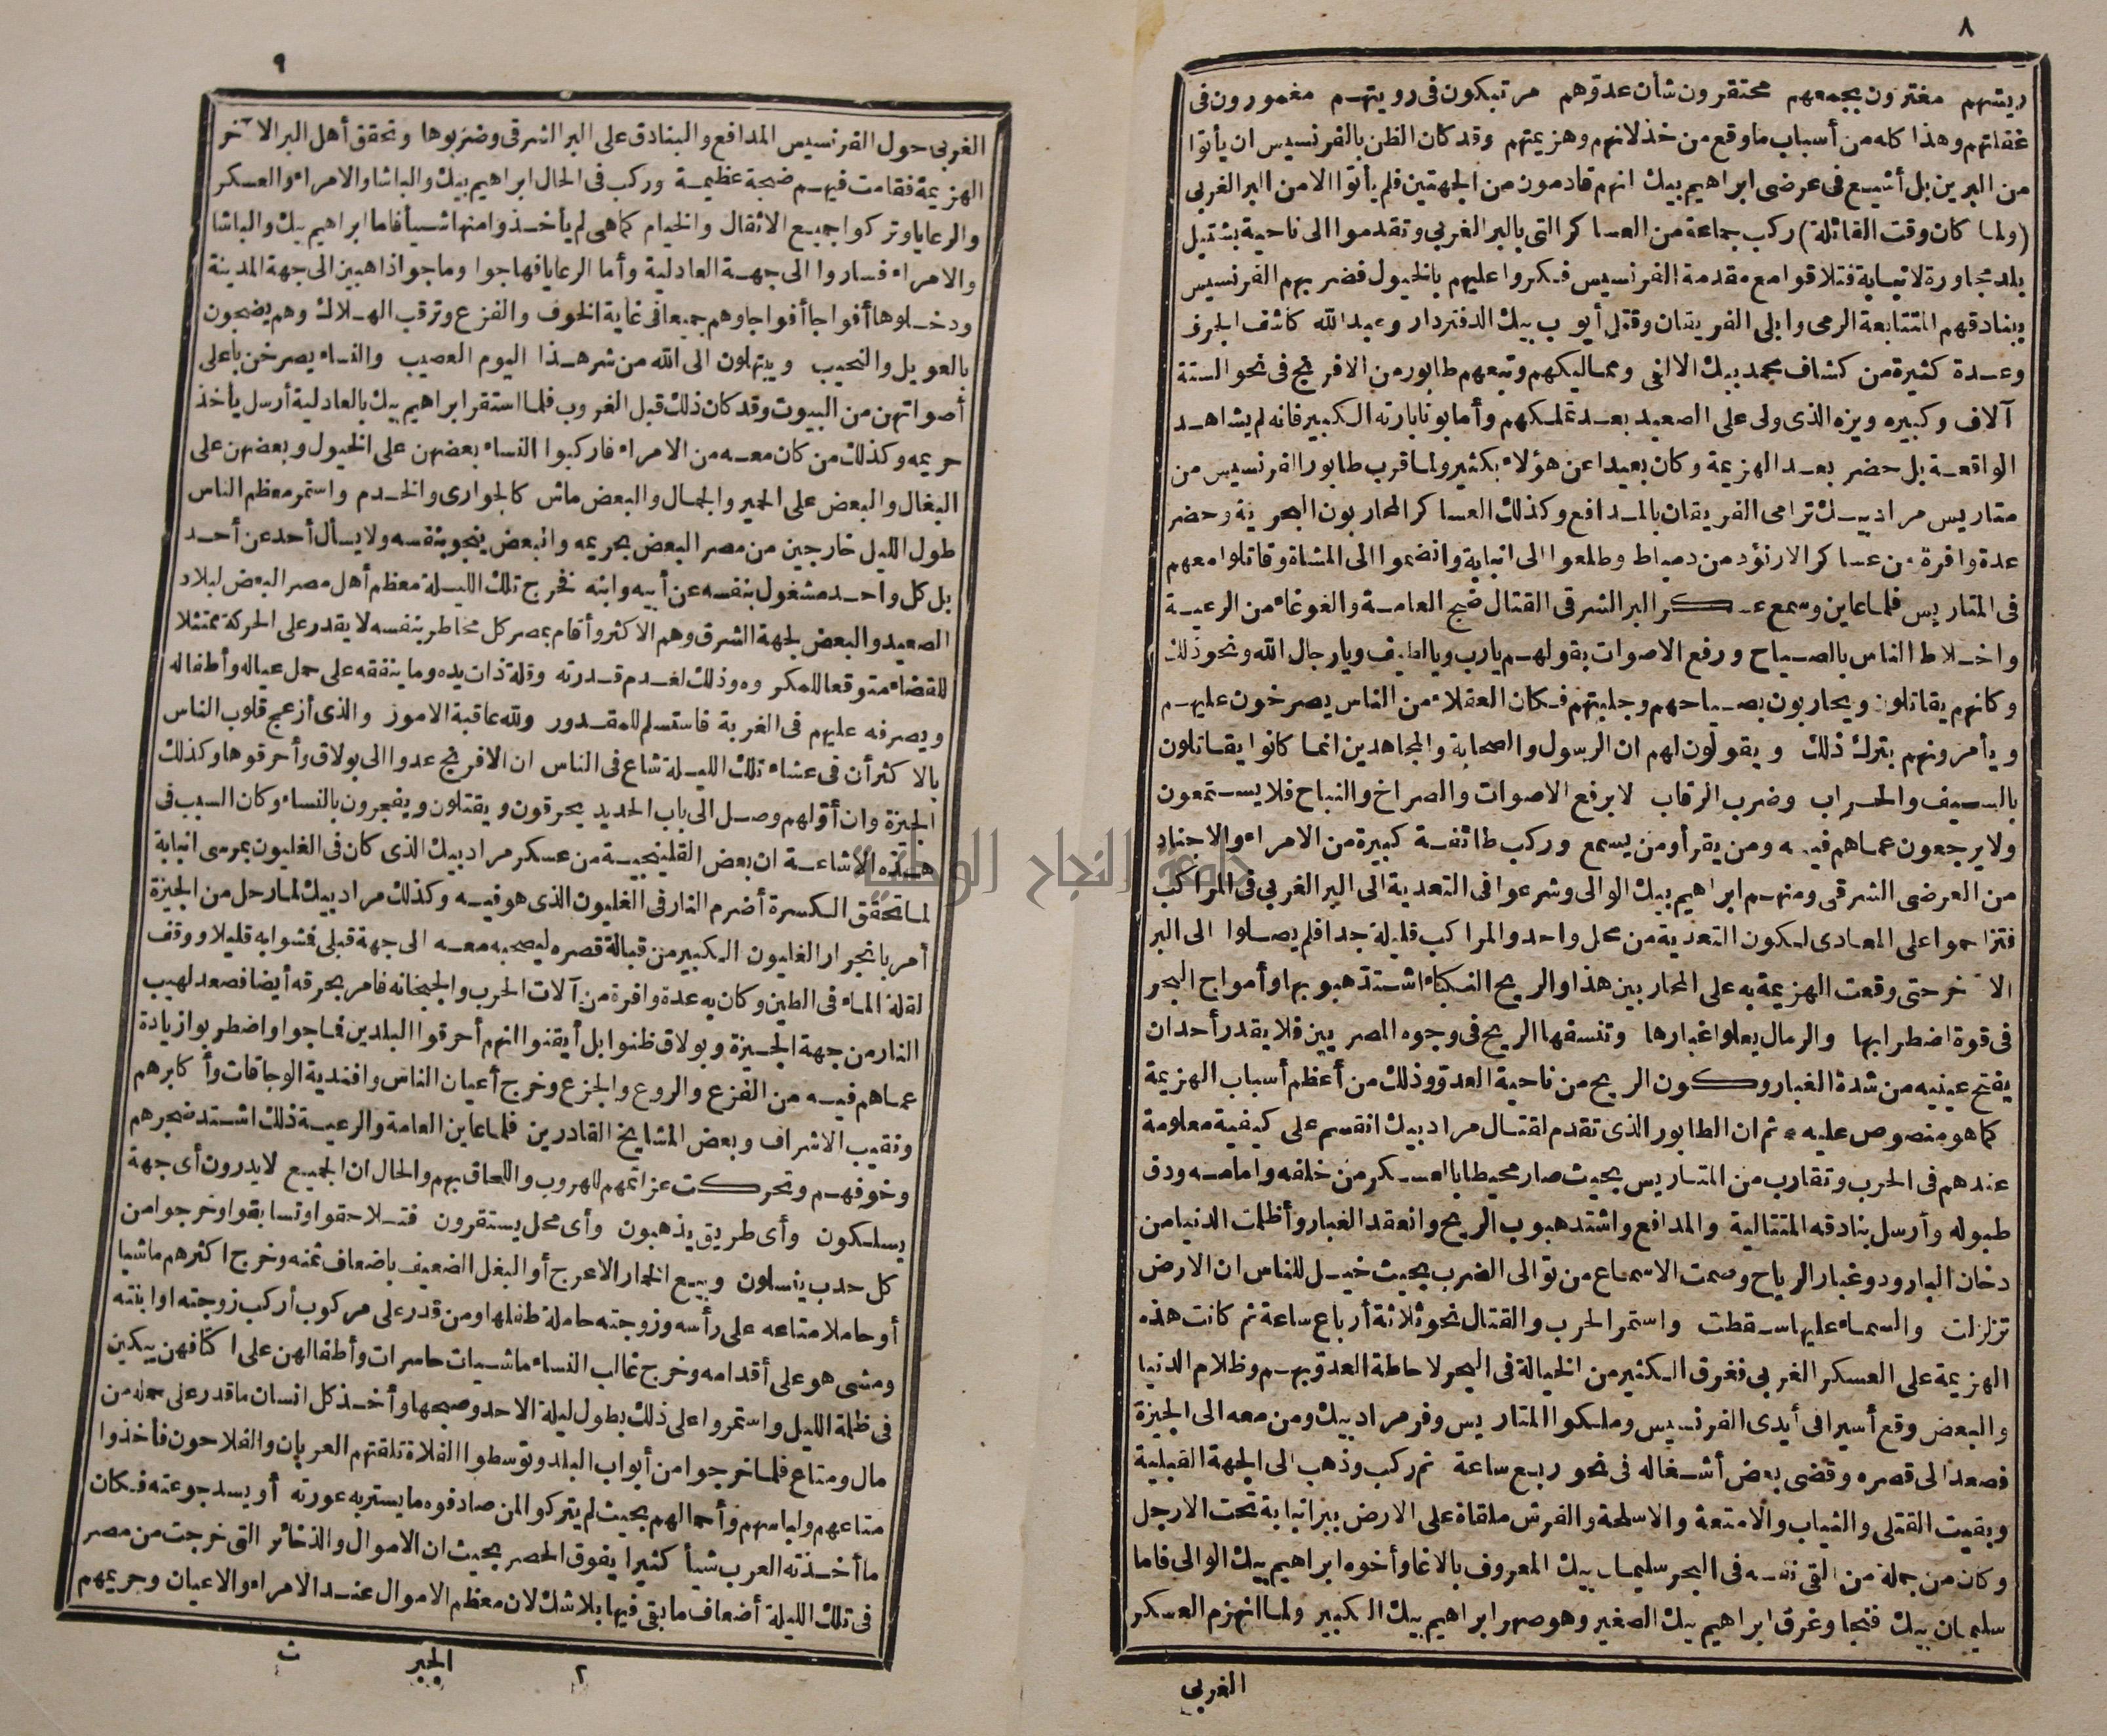 ٨
ريشهم مغترون بجمعهم محتقرون شأن عدوّهم مرتبكون فى رويتهم مغمورون فى
غفلتهم وهذا كله من أسباب ما وقع من خذلانهم وهزيمتهم وقد كان الظن بالفرنسيس ان يأتوا
من البرين بل أشيع فى عرضى ابراهيم بيك انهم قادمون من الجهتين فلم يأتوا الا من البر الغربى
(ولما كان وقت القائلة) ركب جماعة من العساكر التى بالبر الغربى وتقدموا الى ناحية بشتيل
بلد مجاورة لانبابة فتلاقوا مع مقدمة الفرنسيس فكروا عليهم بالخيول فضربهم الفرنسيس
ببنادقهم المتتابعة الرمى وأبلى الفريقان وقتل أيوب بيك الدفتردار وعبد الله كاشف الجرف
وعدة كثيرة من كشاف محمد بيك الالفى ومماليكهم وتبعهم طابور من الافرنج فى نحو الستة
آلاف وكبيره ويزه الذى ولى على الصعيد بعد تملكهم وأما بونابارته الكبير فانه لم يشاهد
الواقعة بل حضر بعد الهزيمة وكان بعيدا عن هؤلاء بكثير ولما قرب طابور الفرنسيس من
متاريس مراد بيك ترامى الفريقان بالمدافع وكذلك العساكر المحاربون البحرية وحضر
عدة وافرة من عساكر الارنؤد من دمياط وطلعوا الى انبابة وانضموا الى المشاة وقاتلوا معهم
فى المتاريس فلما عاين وسمع عسكر البر الشرقى القتال ضج العامة والغوغاء من الرعية
واخلاط الناس بالصياح ورفع الاصوات بقولهم يا رب ويا لطيف ويا رجال الله ونحو ذلك
وكانهم يقاتلون ويحاربون بصياحهم وجلبتهم فكان العقلاء من الناس يصرخون عليهم
ويأمرونهم بترك ذلك ويقولون لهم ان الرسول والصحابة والمجاهدين انما كانوا يقاتلون
بالسيف والحراب وضرب الرقاب لا برفع الاصوات والصراخ والنباح فلا يستمعون
ولا يرجعون عما هم فيه ومن يقرأ ومن يسمع وركب طائفة كبيرة من الامراء والاجناد
من العرضى الشرقى ومنهم ابراهيم بيك الوالى وشرعوا فى التعدية الى البر الغربى فى المراكب
فتزاحموا على المعادى لكون التعدية من محل واحد والمراكب قليلة جدا فلم يصلوا الى البر
الآخر حتى وقعت الهزيمة به على المحاربين هذا والريح النكباء اشتد هبوبها وأمواج البحر
فى قوة اضطرابها والرمال يعلو غبارها وتنسفها الريح فى وجوه المصريين فلا يقدر أحد ان
يفتح عينيه من شدة الغبار وكون الريح من ناحية العدو وذلك من أعظم أسباب الهزيمة
كما هو منصوص عليه * ثم ان الطابور الذى تقدم لقتال مراد بيك انقسم على كيفية معلومة
عندهم فى الحرب وتقارب من المتاريس بحيث صار محيطا بالعسكر من خلفه وامامه ودق
طبوله وأرسل بنادقه المتتالية والمدافع واشتد هبوب الريح وانعقد الغبار وأظلمت الدنيا من
دخان البارود وغبار الرياح وصمت الاسماع من توالى الضرب بحيث خيل للناس ان الارض
تزلزلت والسماء عليها سقطت واستمر الحرب والقتال نحو ثلاثة أرباع ساعة ثم كانت هذه
الهزيمة على العسكر الغربى فغرق الكثير من الخيالة فى البحر لاحاطة العدو بهم وظلام الدنيا
والبعض وقع أسيرا فى أيدى الفرنسيس وملكوا المتاريس وفر مراد بيك ومن معه الى الجيزة
فصعد الى قصره وقضى بعض أشغاله فى نحو ربع ساعة ثم ركب وذهب الى الجهة القبلية
وبقيت القتلى والثياب والامتعة والاسلحة والفرش ملقاة على الارض ببر انبابة تحت الارجل
وكان من جملة من القى نفسه فى البحر سليمان بيك المعروف بالاغا وأخوه ابراهيم بيك الوالى فاما
سليمان بيك فنجا وغرق ابراهيم بيك الصغير وهو صهر ابراهيم بيك الكبير ولما انهزم العسكر
الغربى
٩
الغربى حول الفرنسيس المدافع والبنادق على البر الشرقى وضربوها وتحقق أهل البر الآخر
الهزيمة فقامت فيهم ضجة عظيمة وركب فى الحال ابراهيم بيك والباشا والامراء والعسكر
والرعايا وتركوا جميع الاثقال والخيام كما هى لم يأخذوا منها شيأ فاما ابراهيم بيك والباشا
والامراء فساروا الى جهة العادلية وأما الرعايا فهاجوا وماجوا ذاهبين الى جهة المدينة
ودخلوها أفواجا أفواجا وهم جميعا فى غاية الخوف والفزع وترقب الهلاك وهم يضجون
بالعويل والنحيب ويبتهلون الى الله من شر هذا اليوم العصيب والنساء يصرخن باعلى
أصواتهن من البيوت وقد كان ذلك قبل الغروب فلما استقر ابراهيم بيك بالعادلية أرسل يأخذ
حريمه وكذلك من كان معه من الامراء فاركبوا النساء بعضهن على الخيول وبعضهن على
البغال والبعض على الحمير والجمال والبعض ماش كالجوارى والخدم واستمر معظم الناس
طول الليل خارجين من مصر البعض بحريمه والبعض ينجو بنفسه ولا يسأل أحد عن أحد
بل كل واحد مشغول بنفسه عن أبيه وابنه فخرج تلك الليلة معظم أهل مصر البعض لبلاد
الصعيد والبعض لجهة الشرق وهم الاكثر وأقام بمصر كل مخاطر بنفسه لا يقدر على الحركة ممتثلا
للقضاء متوقعا للمكروه وذلك لعدم قدرته وقلة ذات يده وما ينفقه على حمل عياله وأطفاله
ويصرفه عليهم فى الغربة فاستسلم للمقدور ولله عاقبة الامور والذى أزعج قلوب الناس
بالاكثر أن فى عشاء تلك الليلة شاع فى الناس ان الافرنج عدوا الى بولاق وأحرقوها وكذلك
الجيزة وان أولهم وصل الى باب الحديد يحرقون ويقتلون ويفجرون بالنساء وكان السبب فى
هذه الاشاعة ان بعض القلينجية من عسكر مراد بيك الذى كان فى الغليون بمرسى انبابة
لما تحقق الكسرة أضرم النار فى الغليون الذى هو فيه وكذلك مراد بيك لما رحل من الجيزة
أمر بانجرار الغليون الكبير من قبالة قصره ليصحبه معه الى جهة قبلى فمشوا به قليلا ووقف
لقلة الماء فى الطين وكان به عدة وافرة من آلات الحرب والجبخانه فامر بحرقه أيضا فصعد لهيب
النار من جهة الجيزة وبولاق ظنوا بل أيقنوا انهم أحرقوا البلدين فماجوا واضطربوا زيادة
عما هم فيه من الفزع والروع والجزع وخرج أعيان الناس وافندية الوجاقات وأكابرهم
ونقيب الاشراف وبعض المشايخ القادرين فلما عاين العامة والرعية ذلك اشتد ضجرهم
وخوفهم وتحركت عزائمهم للهروب واللحاق بهم والحال ان الجميع لا يدرون أى جهة
يسلكون وأى طريق يذهبون وأى محل يستقرون فتلاحقوا وتسابقوا وخرجوا من
كل حدب ينسلون وبيع الحمار الاعرج أو البغل الضعيف باضعاف ثمنه وخرج اكثرهم ماشيا
أو حاملا متاعه على رأسه وزوجته حاملة طفلها ومن قدر على مركوب أركب زوجته او ابنته
ومشى هو على أقدامه وخرج غالب النساء ماشيات حاسرات وأطفالهن على اكتافهن يبكين
فى ظلمة الليل واستمروا على ذلك بطول ليلة الاحد وصبحها وأخذ كل انسان ما قدر على حمله من
مال ومتاع فلما خرجوا من أبواب البلد وتوسطوا الفلاة تلقتهم العربان والفلاحون فأخذوا
متاعهم ولباسهم وأحمالهم بحيث لم يتركوا لمن صادفوه ما يستر به عورته أو يسد جوعته فكان
ما أخذته العرب شيأ كثيرا يفوق الحصر بحيث ان الاموال والذخائر التى خرجت من مصر
فى تلك الليلة أضعاف ما بقى فيها بلا شك لان معظم الاموال عند الامراء والاعيان وحريمهم
٢ الجبر ث
جامعة النجاح الوطنية